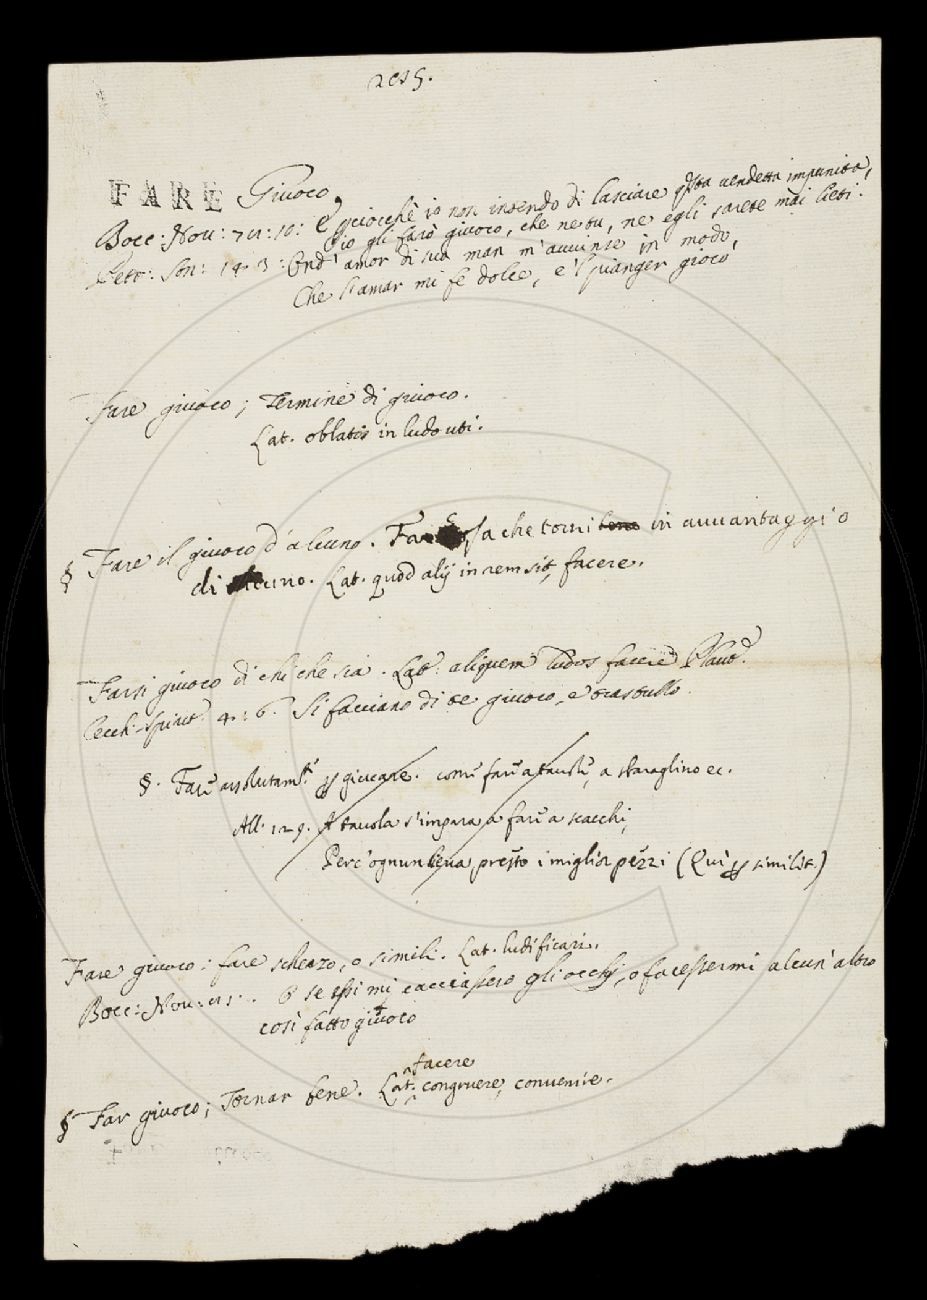 FARE Giuoco,
Bocc: Nov: 71: 10: E perciocchè io non intendo di lasciare q̃sta vendetta impunita,
io gli farò giuoco, che ne tu, ne egli sarete mai lieti.
Petr: Son: 143: Ond' amor di sua man m'avvinse in modo,
Che l'amar mi fè dolce, e 'l pianger gioco
Fare giuoco; Termine di giuoco.
Lat. oblatis in ludo uti.
§ Fare il giuoco d'alcuno. Far cosa che torni bene in avvantaggio
di alcuno. Lat. quod alij in rem sit, facere.
Farsi giuoco di chi che sia. Lat. aliquem ludos facere Plaut.
Cecch. Spirit. 4: 6. Si facciano di te giuoco, e trastullo.
§. Fare assolutam.te p giucare. come fare a tavole, a sbaraglino ec.
All. 129. A tavola s'impara a fare a scacchi,
Perc' ognun leva presto i miglior pezzi (Qui p similit.)
Fare giuoco: fare scherzo, o simili. Lat. ludificari.
Bocc: Nov: O se essi mi cacciassero gli occhj, o facessermi alcun' altro
così fatto giuoco
facere
§ Far giuoco; Tornar bene. Lat. congruere, convenire.